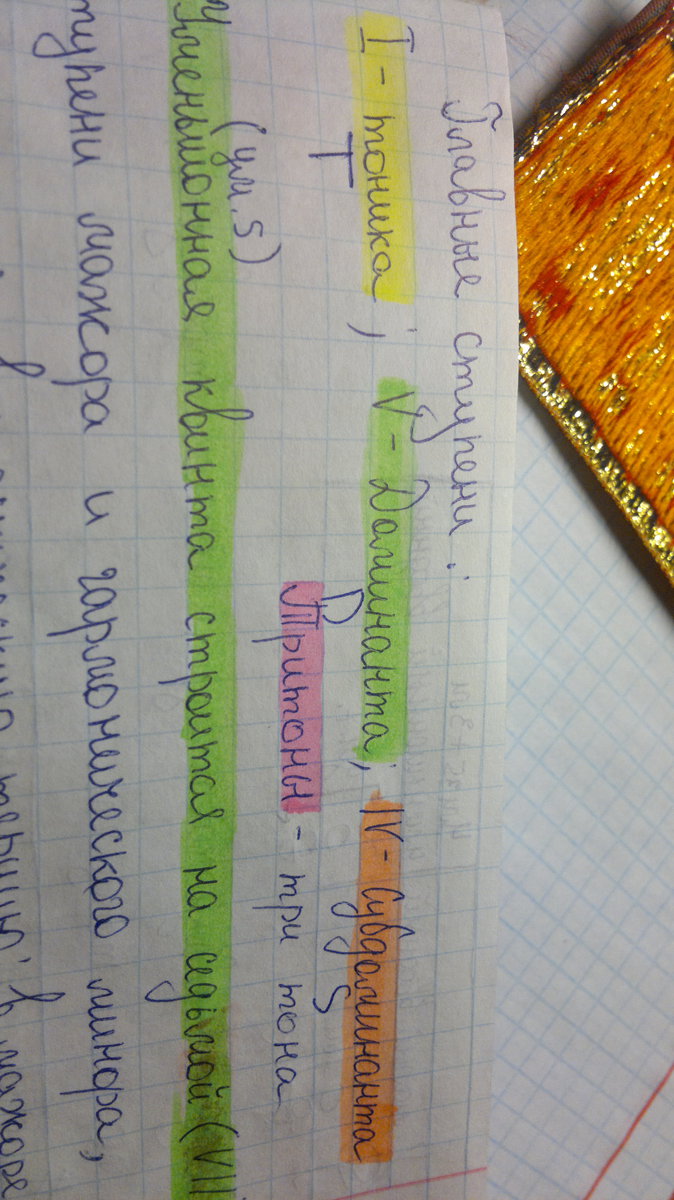 Главные ступени:
I - тоника; V - Доминанта; IV - Субдоминанта
T D S
Тритоны - три тона
(ум.5)
Уменьшонная квинта строится на седьмой (VII
ступени мажора и гармонического минора,
в мажоре